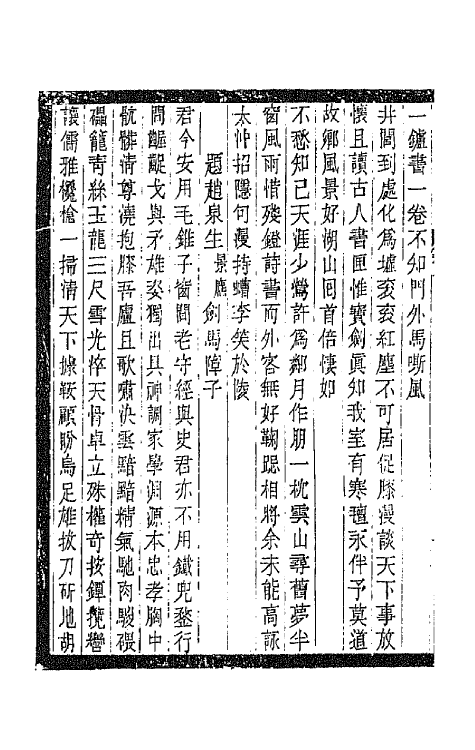 一鑪書一卷不知門外馬嘶風
井閭到處化為墟衮衮紅塵不可居促膝漫談天下事放
懷且讀古人書匣惟寶劍真知我室有寒氊永伴予莫道
故鄉風景好湖山囘首倍悽如
不愁知己天涯少鶯許為鄰月作朋一枕雲山尋舊夢半
窗風雨惜殘鐙詩書而外容無好鞠跽相將余未能高詠
太仲招隱句漫持螬李笑於陵
題趙泉生景鷹劍馬障子
君今安用毛錐子窗間老守經與史君亦不用鐵兜鍪行
間齷齪戈與矛雄姿獨出具神調家學淵源本忠孝胸中
骯髒清尊澆抱膝吾廬且歌嘯決雲黯黯精氣馳肉駿碨
礧籠靑絲玉龍三尺雪光悴天骨卓立殊權奇按鐔攬轡
讓儒雅欃槍一掃淸天下據鞍顧盼烏足雄拔刀斫地胡